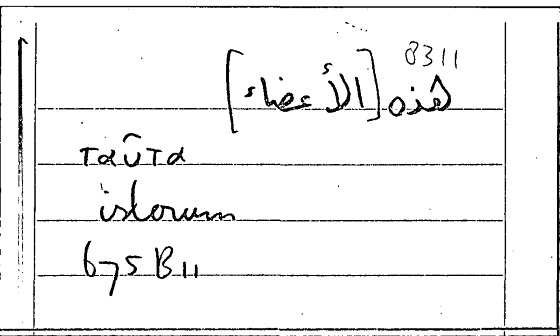 8311
هذه [الأعضاء]
ταῦτα
istorum
675 B 11